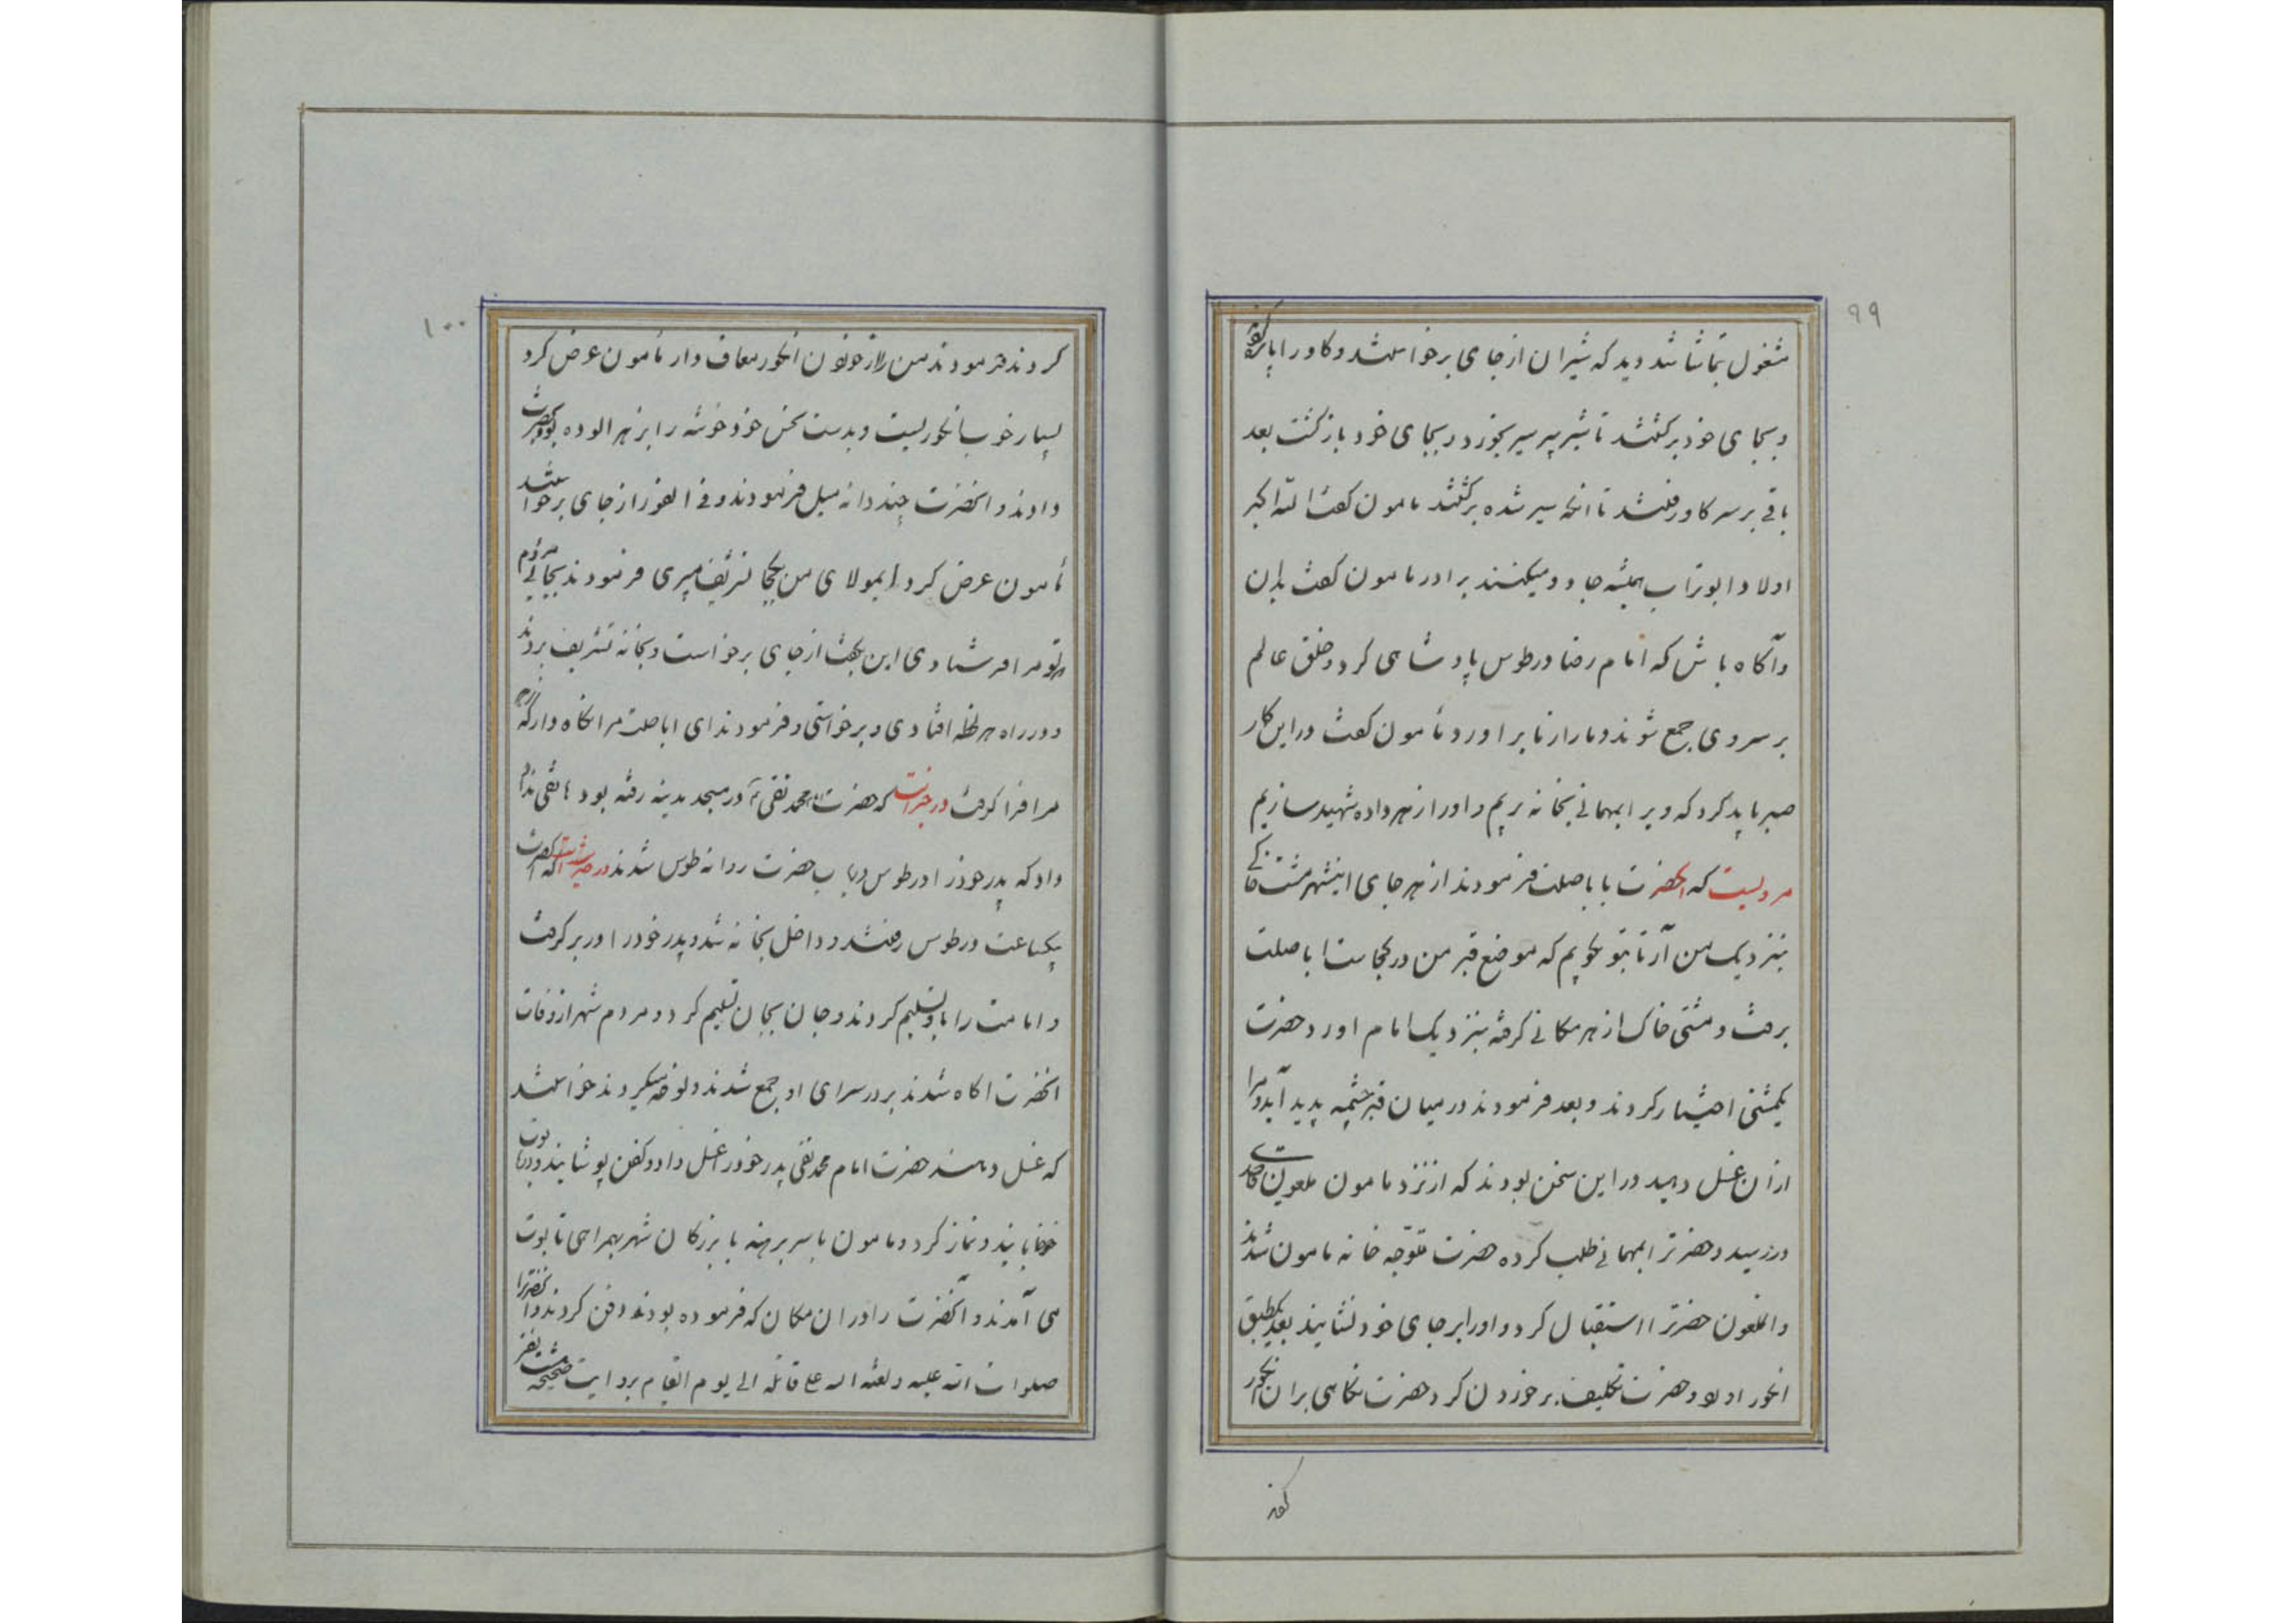 ۹۹
مشغول تماشا شد دید که شیران از جای برخواستند و کاو را پاره
و بجای خود برکشتند تا شیر پیر سیر بخورد و بجای خود بازکشت بعد
باقی بر سر کاو رفتند تا انکه سیر شده برکشتند مامون کفت الله اکبر
اولاد ابوتراب همیشه جادو میکنند برادر مامون کفت بدان
و آکاه باش که امام رضا در طوس پادشاهی کرد و خلق عالم
بر سر وی جمع شوند و مار از ما براورد مأمون کفت در این کار
صبر باید کرد که ویرا بمهمانی بخانه بریم و او را زهر داده شهید سازیم
مرویست که انحضرت با باصلت فرمودند از هر جای اینشهر مشت خاکی
بنزدیک من آر تا بتو بکویم که موضع قبر من در کجاست اباصلت
برفت و مشتی خاک از هر مکانی کرفته بنزدیک امام اورد حضرت
یکمشتی اختیار کردند و بعد فرمودند در میان قبر چشمه پدید آید و مرا
از آن غسل دهید در این سخن بودند که از نزد مامون ملعون قاصدی
در رسید و حضرترا بمهمانی طلب کرده حضرت متوجه خانه مامون شدند
و انملعون حضرترا استقبال کرد و او را بر جای خود نشانید بعد یکطبق
انکور اورد و حضرت تکلیف بر خوردن کرد حضرت نکاهی بر ان انکور
۱۰۰
کردند فرمودند من را از خوردن انکور معاف دار مأمون عرض کرد
بسیار خوب انکوریست و بدست نحس خود خوشه را بر زهر الوده بود بحضرت
دادند و انحضرت چند دانه میل فرمودند و فی الفور از جای برخواستند
مأمون عرض کرد ایمولای من بکجا تشریف میبری فرمودند بجائی میروم
که تو مرا فرستادی این بکفت از جای برخواست و بخانه تشریف بردند
و در راه هر لحظه افتادی و برخواستی و فرمودند ای اباصلت مرا نکاه دار که
مرا فرا کرفت در خبر است که حضرت امام محمد تقی در مسجد مدینه رفته بود هاتفی ندا
داد که پدر خود را در طوس دریاب حضرت روانه طوس شدند در حدیث است که انحضرت
بیکساعت در طوس رفتند و داخل بخانه شد و پدر خود را در بر کرفت
و امامت را باو تسلیم کردند و جان بجان تسلیم کرد و مردم شهر از وفات
انحضرت اکاه شدند بر در سرای او جمع شدند و نوحه میکردند خواستند
که غسل دهند حضرت امام محمد تقی پدر خود را غسل داد و کفن پوشانید و در تابوت
خوابانید و نماز کرد و مامون با سر برهنه با بزرکان شهر بهمراهی تابوت
می آمدند و آنحضرت را در ان مکان که فرموده بودند دفن کردند و انحضرترا
صلوات الله علیه و لعنة الله علی قاتله الی یوم القیام بروایت صحیحه